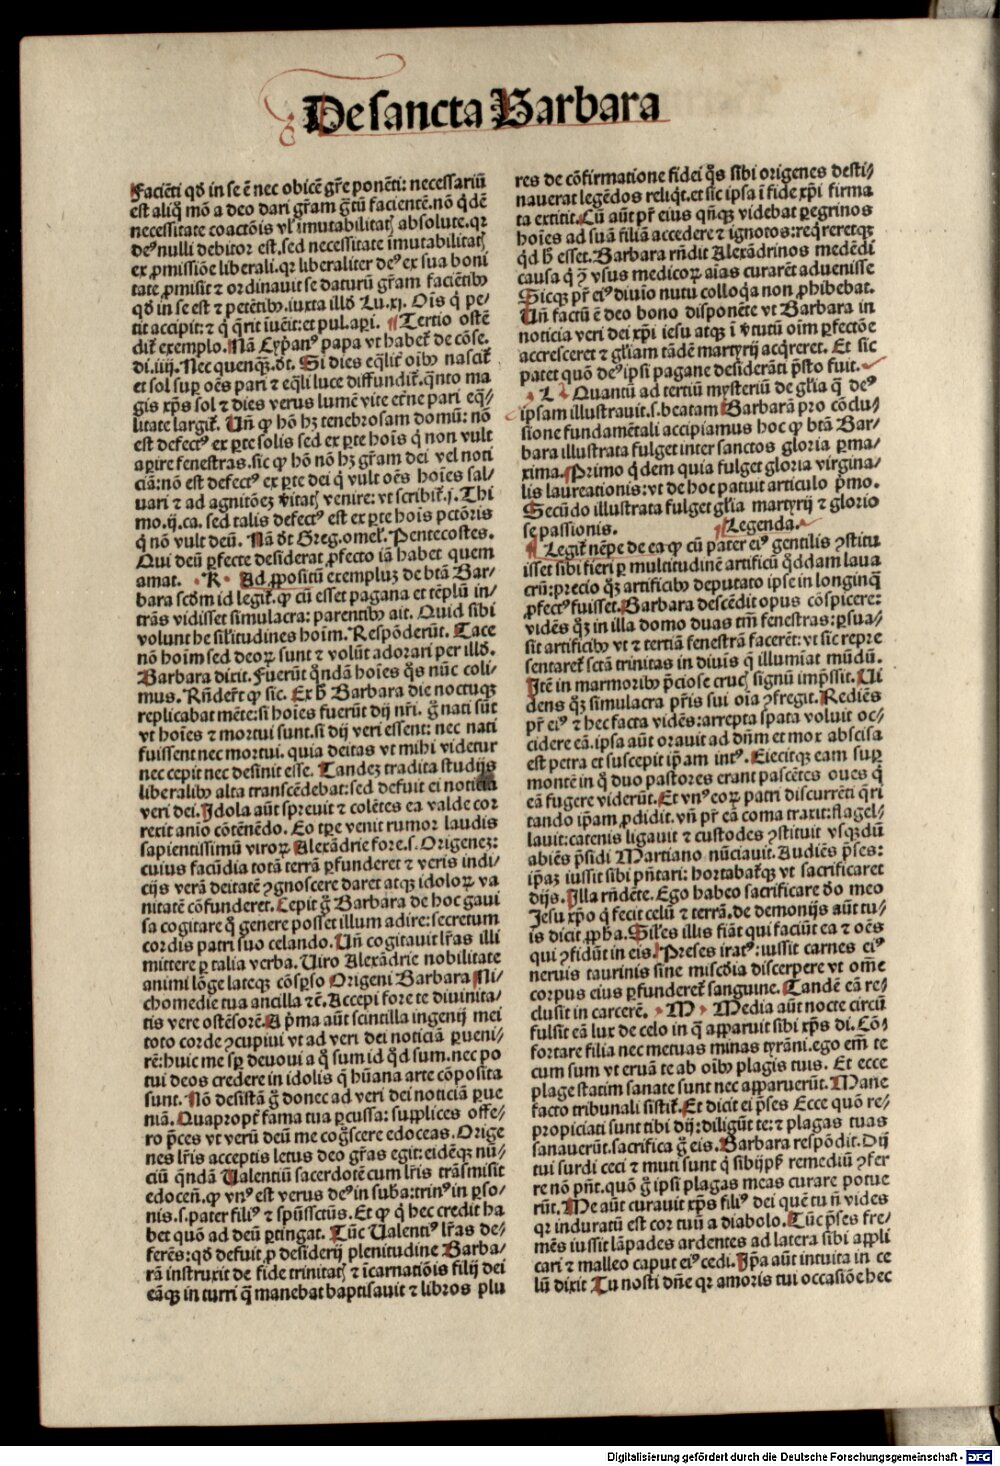 De sancta Barbara
Faciēti qđ in se ē nec obicē gr̄e ponēti: necessariū
est aliq̄ mō a deo dari gr̄am gr̄tū facientē. nō q̇dē
necessitate coactōis vl' īmutabilitatꝭ absolute. qꝛ
deꝰ nulli debitor est. sed necessitate īmutabilitatꝭ
ex ꝓmissiōe liberali. qꝛ liberaliter deꝰ ex sua boni
tate ꝓmisit ⁊ ordinauit se daturū gr̄am faciētibꝰ
qđ in se est ⁊ petētibꝰ. iuxta illđ Lu. xj. Oīs q̇ pe-
tit accipit: ⁊ q̇ q̄rit iuēit: et pul. aꝑi. ¶ Tertio ostē
dit̄ exemplo. Nā Cypanꝰ papa vt habet̄ de cōse.
di. iiij. Nec quenqꝫ. đt. Si dies eq̄lit̄ oībꝰ nascit̄
et sol suꝑ oēs pari ⁊ eq̄li luce diffundit̄. q̄nto ma
gis xp̄s sol ⁊ dies verus lumē vite et̄ne pari eq̄-
litate largit̄. Un̄ ꝙ hō hꝫ tenebrosam domū: nō
est defectꝰ ex ꝑte solis sed ex ꝑte hoīs q̇ non vult
aꝑire fenestras. sic ꝙ hō nō hꝫ gr̄am dei vel noti
ciā: nō est defectꝰ ex ꝑte dei q̇ vult oēs hoīes sal-
uari ⁊ ad agnitōeꝫ v̄itatꝭ venire: vt scribit̄. j. Thi
mo. ij. ca. sed talis defectꝰ est ex ꝑte hoīs pctōris
q̇ nō vult deū. Nā đt Greg. omel'. Pentecostes.
Qui deū ꝑfecte desiderat ꝓfecto iā habet quem
amat. · R · Ad ꝓpositū exempluꝫ de btā Bar-
bara scđm id legit̄. ꝙ cū esset pagana et tēplū in-
trās vidisset simulacra: parentibꝰ ait. Quid sibi
volunt he sil'itudines hoīm. Respōderūt. Tace
nō hoīm sed deoꝝ sunt ⁊ volūt adorari per illđ.
Barbara dixit. Fuerūt q̄ndā hoīes q̄s nūc coli-
mus. Rn̄der̄t ꝙ sic. Ex ħ Barbara die noctuqꝫ
replicabat mēte: si hoīes fuerūt dij nr̄i. ḡ nati sūt
vt hoīes ⁊ mortui sunt. si dij veri essent: nec nati
fuissent nec mortui. quia deitas vt mihi videtur
nec cepit nec desinit esse. Tandeꝫ tradita studijs
liberalibꝰ alta transcēdebat: sed defuit ei noticia
veri dei. Idola aūt spreuit ⁊ colētes ea valde cor
rexit anīo cōtēnēdo. Eo tꝑe venit rumor laudis
sapientissimū viroꝝ Alexādrie fore. s. Origeneꝫ:
cuius facūdia totā terrā ꝑfunderet ⁊ veris indi-
cijs verā deitatē ꝯgnoscere daret atqꝫ idoloꝝ va
nitatē cōfunderet. Cepit ḡ Barbara de hoc gaui
sa cogitare q̄ genere posset illum adire: secretum
cordis patri suo celando. Un̄ cogitauit lr̄as illi
mittere ꝑ talia verba. Uiro Alexādrie nobilitate
animi lōge lateqꝫ cōsꝑso Origeni Barbara Ni-
chomedie tua ancilla ⁊ē. Accepi fore te diuinita-
tis vere ostēsorē. A p̄ma aūt scintilla ingenij mei
toto corde ꝯcupiui vt ad veri dei noticiā ꝑueni-
rē: huic me sꝑ deuoui a q̄ sum id qđ sum. nec po
tui deos credere in idolis q̄ hūana arte cōposita
sunt. Nō desistā ḡ donec ad veri dei noticiā ꝑue
niā. Quapropt̄ fama tua ꝑcussa: supplices offe-
ro p̄ces vt verū deū me coḡscere edoceas. Orige
nes lr̄is acceptis letus deo gr̄as egit: eidēqꝫ nū-
ciū q̄ndā Ualentiū sacerdotē cum lr̄is trāsmisit
edocen̄. ꝙ vnꝰ est verus deꝰ in suba: trinꝰ in ꝑso-
nis. s. pater filiꝰ ⁊ sp̄ussctūs. Et ꝙ q̇ hec credit ha
bet quō ad deū ꝑtingat. Tūc Ualentiꝰ lr̄as de-
ferēs: qđ defuit ꝓ desiderij plenitudine Barba-
rā instruxit de fide trinitatꝭ ⁊ īcarnatiōis filij dei
eāqꝫ in turri q̄ manebat baptisauit ⁊ libros plu
res de cōfirmatione fidei q̄s sibi origenes desti-
nauerat legēdos reliq̇t. et sic ipsa ī fide xp̄i firma
ta extitit. Cū aūt pr̄ eius qn̄qꝫ videbat ꝑegrinos
hoīes ad suā filiā accedere ⁊ ignotos: req̇reretqꝫ
q̇d ħ esset. Barbara rn̄dit Alexādrinos medēdi
causa q̇ ꝫ vsus medicoꝝ aīas curarēt aduenisse
Sicqꝫ pr̄ eiꝰ diuīo nutu colloq̇a non ꝓhibebat.
Un̄ factū ē deo bono disponēte vt Barbara in
noticia veri dei xp̄i iesu atqꝫ ī v̄tutū oīm ꝑfectōe
accresceret ⁊ gl'iam tādē martyrij acq̇reret. Et sic
patet quō deꝰ ipsi pagane desiderāti p̄sto fuit.
· L · Quantū ad tertiū mysteriū de gl'ia q̄ deꝰ
ipsam illustrauit. s. beatam Barbarā pro cōclu-
sione fundamētali accipiamus hoc ꝙ btā Bar-
bara illustrata fulget inter sanctos gloria ꝑma-
xima. Primo q̇dem quia fulget gloria virgina-
lis laureationis: vt de hoc patuit articulo p̄mo.
Secūdo illustrata fulget gl'ia martyrij ⁊ glorio
se passionis. ¶ Legenda.
¶ Legit̄ nēpe de ea ꝙ cū pater eiꝰ gentilis ꝯstitu
isset sibi fieri ꝑ multitudinē artificū q̄ddam laua
crū: precio qꝫ artificibꝰ deputato ipse in longinq̄
ꝓfectꝰ fuisset. Barbara descēdit opus cōspicere:
vidēs qꝫ in illa domo duas tm̄ fenestras: ꝑsua-
sit artificibꝰ vt ⁊ tertiā fenestrā facerēt: vt sic repre
sentaret̄ sctā trinitas in diuīs q̄ illumīat mūdū.
Itē in marmoribꝰ p̄ciose crucꝭ signū imp̄ssit. Ui
dens qꝫ simulacra pr̄is sui oīa ꝯfregit. Rediēs
pr̄ eiꝰ ⁊ hec facta vidēs: arrepta spata voluit oc-
cidere eā. ipsa aūt orauit ad dn̄m et mox abscisa
est petra et suscepit ip̄am intꝰ. Eiecitqꝫ eam suꝑ
montē in q̄ duo pastores erant pascētes oues q̇
eā fugere viderūt. Et vnꝰ eoꝝ patri discurrēti q̄ri
tando ip̄am ꝓdidit. vn̄ pr̄ eā coma traxit: flagel-
lauit: catenis ligauit ⁊ custodes ꝯstituit vsqꝫdū
abiēs p̄sidi Martiano nūciauit. Audiēs p̄ses:
ip̄aꝫ iussit sibi pn̄tari: hortabat̄qꝫ vt sacrificaret
dijs. Illa rn̄dēte. Ego habeo sacrificare đo meo
Jesu xp̄o q̇ fecit celū ⁊ terrā. de demonijs aūt tu-
is dicit ꝓpħa. Siles illis fiāt qui faciūt ea ⁊ oēs
qui ꝯfidūt in eis. Preses iratꝰ: iussit carnes eiꝰ
neruis taurinis sine miscđia discerpere vt om̄e
corpus eius ꝑfunderet̄ sanguine. Tandē eā re-
clusit in carcerē. · M · Media aūt nocte circū
fulsit eā lux de celo in q̄ apparuit sibi xp̄s di. Cō-
fortare filia nec metuas minas tyrāni. ego em̄ te
cum sum vt eruā te ab oībꝰ plagis tuis. Et ecce
plage statim sanate sunt nec apparuerūt. Mane
facto tribunali sistit̄. Et dicit ei p̄ses Ecce quō re-
propiciati sunt tibi dij: diligūt te: ⁊ plagas tuas
sanauerūt. sacrifica ḡ eis. Barbara respōdit. Dij
tui surdi ceci ⁊ muti sunt q̇ sibijpsꝭ remediū ꝯfer
re nō pn̄t. quō ḡ ipsi plagas meas curare potue
rūt. Me aūt curauit xp̄s filiꝰ dei quē tu n̄ vides
qꝛ induratū est cor tuū a diabolo. Tūc p̄ses fre-
mēs iussit lāpades ardentes ad latera sibi appli
cari ⁊ malleo caput eiꝰ cedi. Ip̄a aūt intuita in ce
lū dixit Tu nosti dn̄e qꝛ amoris tui occasiōe hec
Digitalisierung gefördert durch die Deutsche Forschungsgemeinschaft - DFG